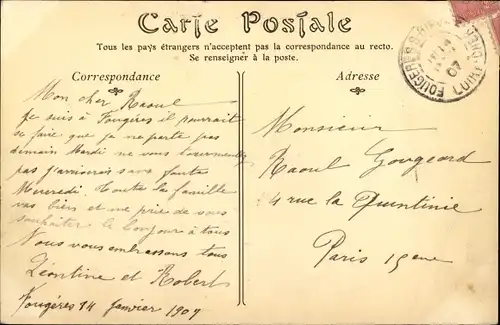 Carte Postale
Tous les pays étrangers n'acceptent pas la correspondance au recto.
Se renseigner à la poste.
Correspondance
Adresse
Mon cher Raoul
Je suis à Fougères il pourrait
se faire que je ne parte pas
demain Mardi ne vous tourmentez
pas j'arriverai sans faute
Mercredi Toute la famille
vas bien et me prie de vous
souhaiter le bonjour à tous
Nous vous embrassons tous
Léontine et Robert
Fougères 14 Janvier 1907
Monsieur
Raoul Gougeard
4 rue la Quintinie
Paris 15eme
FOUGERES
07
LOIR-&-CHER